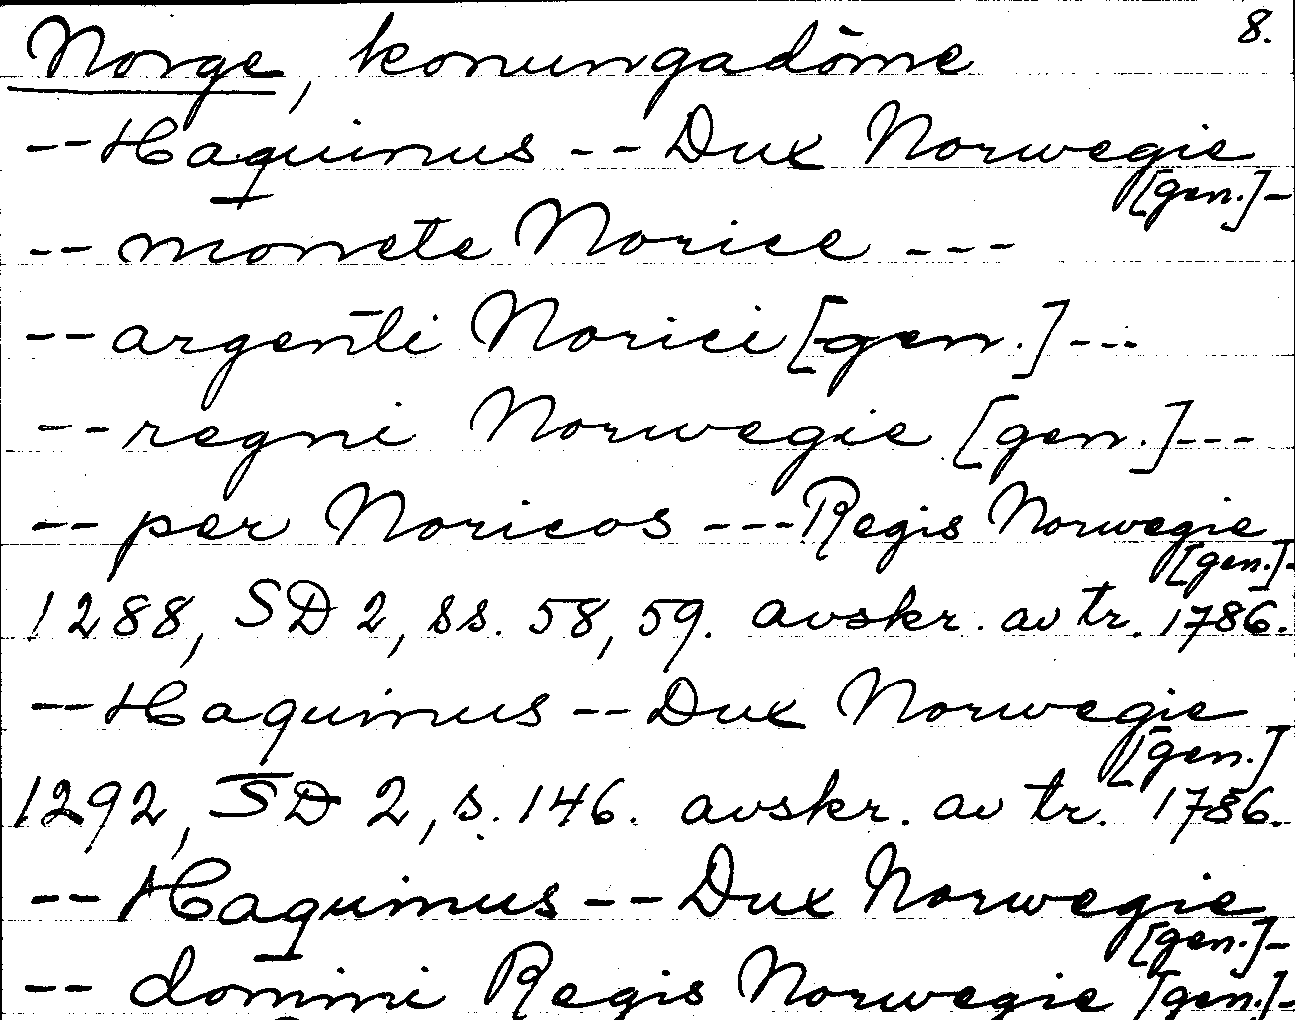 Norge, konungadöme 8.
-- Haquinus -- Dux Norwegie
[gen.]-
-- monete Norice ---
-- argenti Norici [gen.] ---
-- regni Norwegie [gen.] ---
-- per Noricos --- Regis Norwegie
[gen.]-
1288, SD 2, ss. 58, 59. avskr. av tr. 1786.
-- Haquinus -- Dux Norwegie
[gen.]
1292, SD 2, s. 146. avskr. av tr. 1786.
-- Haquinus -- Dux Norwegie
[gen.]-
-- domini Regis Norwegie [gen.]-